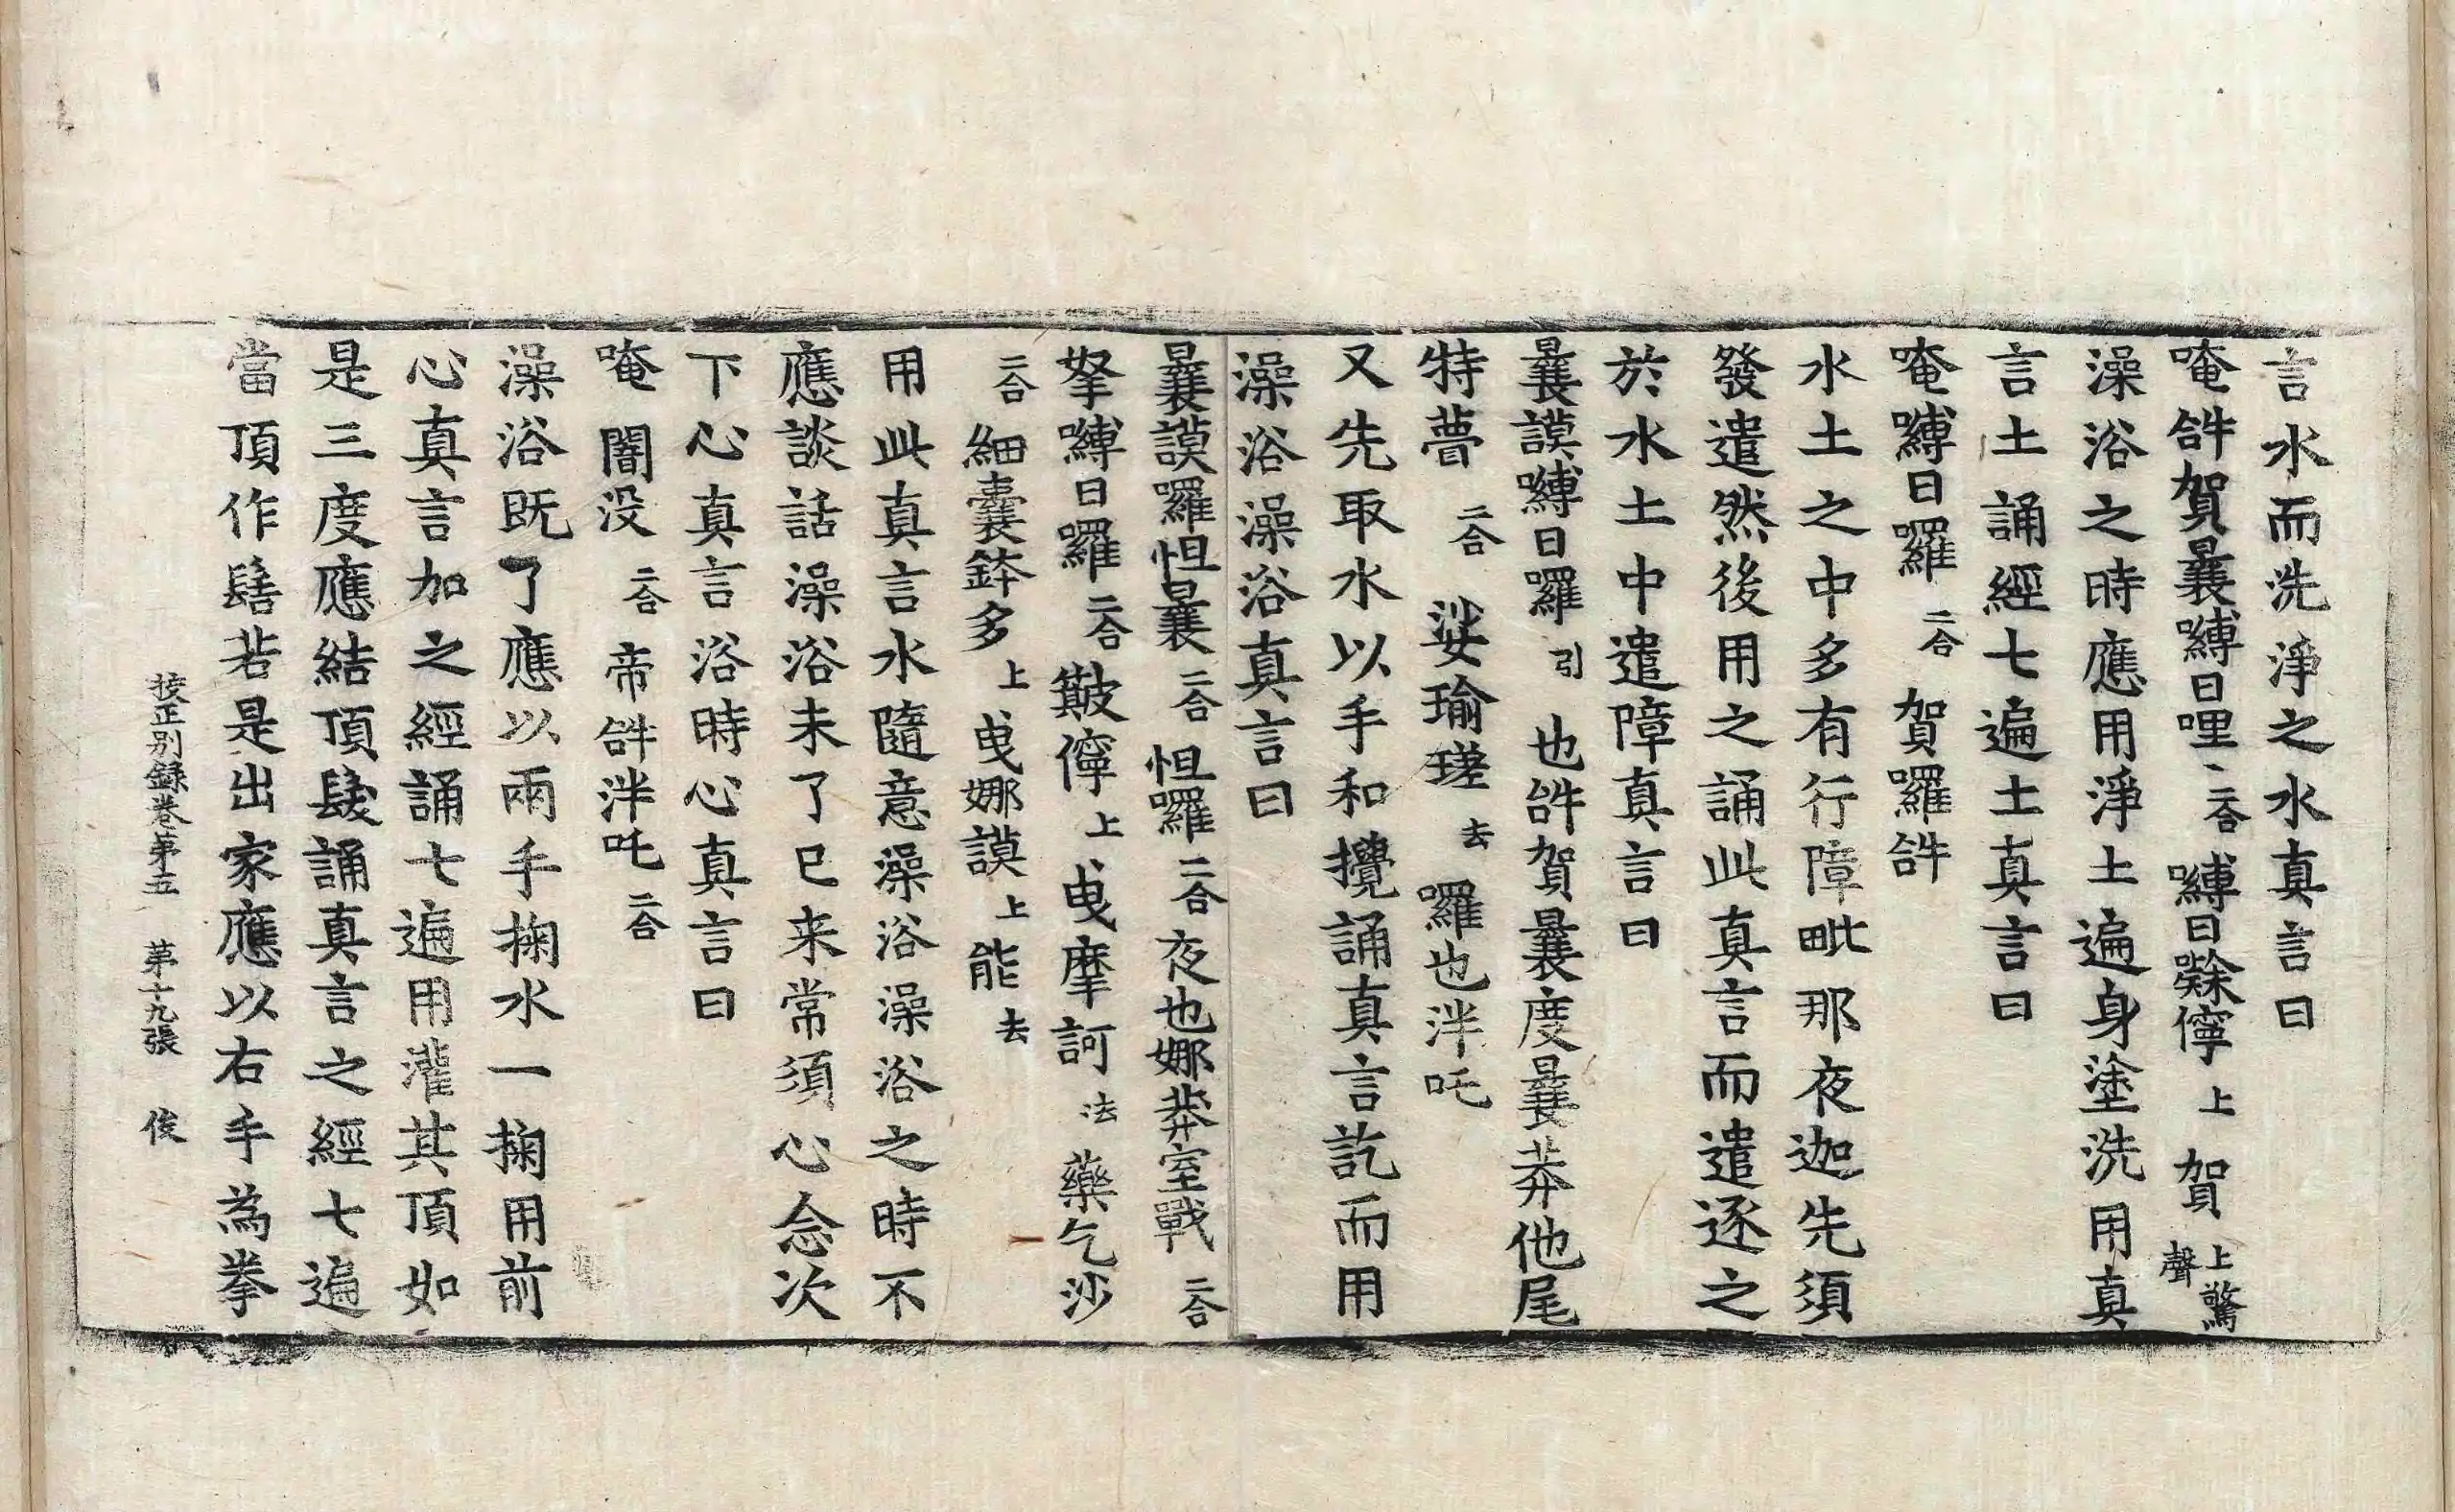 言水而洗淨之水真言曰
唵𤙖賀曩嚩日哩二合嚩日㘑儜上賀上聲驚
澡浴之時應用淨土遍身塗洗用真
言土誦經七遍土真言曰
唵嚩日囉二合賀羅𤙖
水土之中多有行障毗那夜迦先須
發遣然後用之誦此真言而遣逐之
於水土中遣障真言曰
曩謨嚩日囉引也𤙖賀曩度曩莽他尾
特𦶇二合娑瑜瑳去囉也泮吒
又先取水以手和攪誦真言訖而用
澡浴澡浴真言曰
曩謨囉怛曩二合怛囉二合夜也娜莽室戰二合
拏嚩日囉二合簸儜上曳摩訶法藥乞沙
二合細曩鉢多上曳娜謨上能去
用此真言水隨意澡浴澡浴之時不
應談話澡浴未了已来常須心念次
下心真言浴時心真言曰
唵闇没二合帝𤙖泮吒二合
澡浴既了應以兩手掬水一掬用前
心真言加之經誦七遍用灌其頂如
是三度應結頂髮誦真言之經七遍
當頂作髻若是出家應以右手為拳
挍正別録卷第五 第十九張 俊